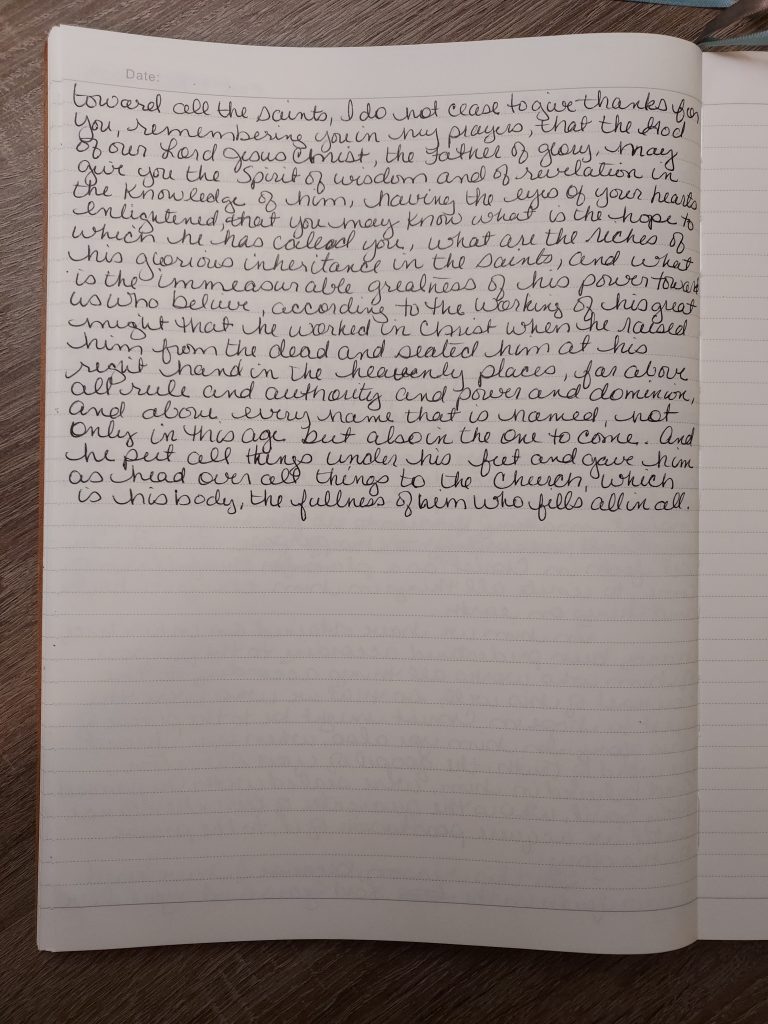 Date:
toward all the saints, I do not cease to give thanks for
you, remembering you in my prayers, that the God
of our Lord Jesus Christ, the Father of glory, may
give you the Spirit of wisdom and of revelation in
the knowledge of him, having the eyes of your hearts
enlightened, that you may know what is the hope to
which he has called you, what are the riches of
his glorious inheritance in the saints, and what
is the immeasurable greatness of his power toward
us who believe, according to the working of his great
might that he worked in Christ when he raised
him from the dead and seated him at his
right hand in the heavenly places, far above
all rule and authority and power and dominion,
and above every name that is named, not
only in this age but also in the one to come. And
he put all things under his feet and gave him
as head over all things to the Church, which
is his body, the fullness of him who fills all in all.